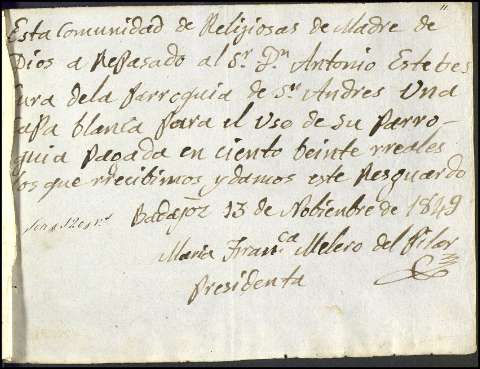 Esta Comunidad de Religiosas de Madre de
Dios a Repasado al Sr. Dn. Antonio Estebes
Cura dela Parroquia de Sn Andres Una
Capa blanca para el Uso de Su Parro-
quia Pagada en ciento beinte rreales
los que rrecibimos y damos este Resguardo
Badajoz 13 de Nobiembre de 1849
Maria Franca Melero del Pilar
Presidenta